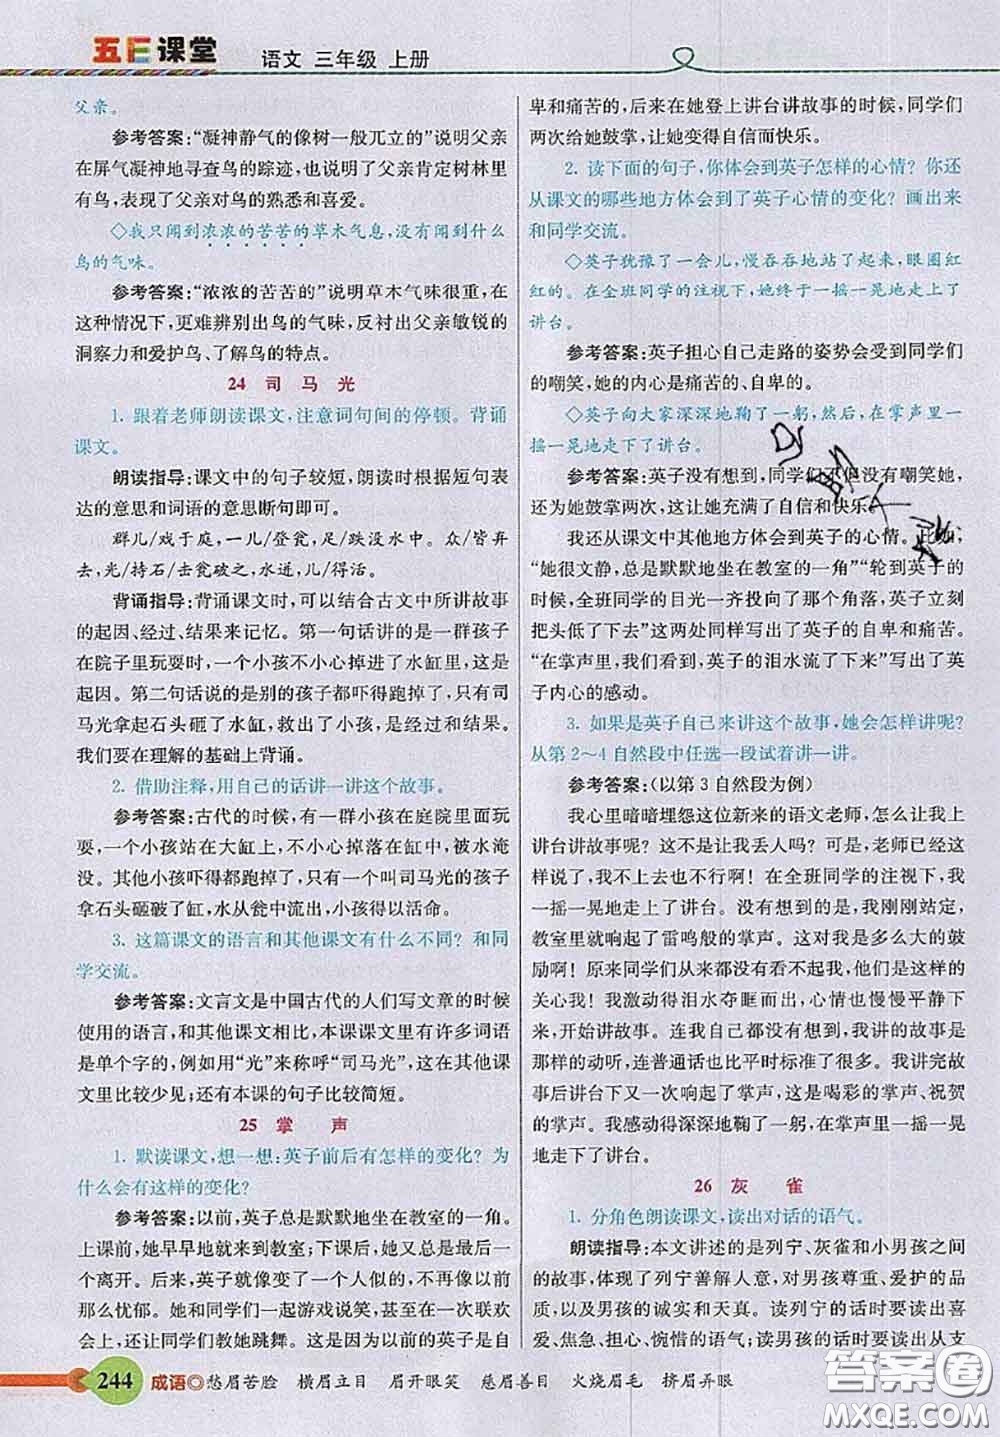 五E课堂
语文 三年级 上册
父亲。
参考答案:“凝神静气的像树一般兀立的”说明父亲
在屏气凝神地寻查鸟的踪迹,也说明了父亲肯定树林里
有鸟,表现了父亲对鸟的熟悉和喜爱。
◇我只闻到浓浓的苦苦的草木气息,没有闻到什么
鸟的气味。
参考答案:“浓浓的苦苦的”说明草木气味很重,在
这种情况下,更难辨别出鸟的气味,反衬出父亲敏锐的
洞察力和爱护鸟、了解鸟的特点。
24 司马光
1. 跟着老师朗读课文,注意词句间的停顿。背诵
课文。
朗读指导:课文中的句子较短,朗读时根据短句表
达的意思和词语的意思断句即可。
群儿/戏于庭,一儿/登瓮,足/跌没水中。众/皆弃
去,光/持石/击瓮破之,水迸,儿/得活。
背诵指导:背诵课文时,可以结合古文中所讲故事
的起因、经过、结果来记忆。第一句话讲的是一群孩子
在院子里玩耍时,一个小孩不小心掉进了水缸里,这是
起因。第二句话说的是别的孩子都吓得跑掉了,只有司
马光拿起石头砸了水缸,救出了小孩,是经过和结果。
我们要在理解的基础上背诵。
2. 借助注释,用自己的话讲一讲这个故事。
参考答案:古代的时候,有一群小孩在庭院里面玩
耍,一个小孩站在大缸上面,不小心掉落在缸中,被水淹
没。其他小孩吓得都跑掉了,只有一个叫司马光的孩子
拿石头砸破了缸,水从瓮中流出,小孩得以活命。
3. 这篇课文的语言和其他课文有什么不同?和同
学交流。
参考答案:文言文是中国古代的人们写文章的时候
使用的语言,和其他课文相比,本课课文里有许多词语
是单个字的,例如用“光”来称呼“司马光”,这在其他课
文里比较少见;还有本课的句子比较简短。
25 掌声
1. 默读课文,想一想:英子前后有怎样的变化?为
什么会有这样的变化?
参考答案:以前,英子总是默默地坐在教室的一角。
上课前,她早早地就来到教室;下课后,她又总是最后一
个离开。后来,英子就像变了一个人似的,不再像以前
那么忧郁。她和同学们一起游戏说笑,甚至在一次联欢
会上,还让同学们教她跳舞。这是因为以前的英子是自
卑和痛苦的,后来在她登上讲台讲故事的时候,同学们
两次给她鼓掌,让她变得自信而快乐。
2. 读下面的句子,你体会到英子怎样的心情?你还
从课文的哪些地方体会到了英子心情的变化?画出来
和同学交流。
◇英子犹豫了一会儿,慢吞吞地站了起来,眼圈红
红的。在全班同学的注视下,她终于一摇一晃地走上了
讲台。
参考答案:英子担心自己走路的姿势会受到同学们
的嘲笑,她的内心是痛苦的、自卑的。
◇英子向大家深深地鞠了一躬,然后,在掌声里一
摇一晃地走下了讲台。
参考答案:英子没有想到,同学们不但没有嘲笑她,
还为她鼓掌两次,这让她充满了自信和快乐。
我还从课文中其他地方体会到英子的心情。比如,
“她很文静,总是默默地坐在教室的一角”“轮到英子的
时候,全班同学的目光一齐投向了那个角落,英子立刻
把头低了下去”这两处同样写出了英子的自卑和痛苦。
“在掌声里,我们看到,英子的泪水流了下来”写出了英
子内心的感动。
3. 如果是英子自己来讲这个故事,她会怎样讲呢?
从第2~4自然段中任选一段试着讲一讲。
参考答案:(以第3自然段为例)
我心里暗暗埋怨这位新来的语文老师,怎么让我上
讲台讲故事呢?这不是让我丢人吗?可是,老师已经这
样说了,我不去也不行啊!在全班同学的注视下,我一
摇一晃地走上了讲台。没有想到的是,我刚刚站定,
教室里就响起了雷鸣般的掌声。这对我是多么大的鼓
励啊!原来同学们从来都没有忘记我,他们是这样的
关心我!我激动得泪水夺眶而出,心情也慢慢平静下
来,开始讲故事。连我自己都没有想到,我讲的故事是
那样的动听,连普通话也比平时标准了很多。我讲完故
事后,讲台下又一次响起了掌声,这是喝彩的掌声、祝贺
的掌声!我感动得深深地鞠了一躬,在掌声里一摇一晃
地走下了讲台。
26 灰雀
1. 分角色朗读课文,读出对话的语气。
朗读指导:本文讲述的是列宁、灰雀和小男孩之间
的故事,体现了列宁善解人意,对男孩尊重、爱护的品
质,以及男孩的诚实和天真。读列宁的话时要读出喜
爱、焦急、担心、惋惜的语气;读男孩的话时要读出从支
244 成语◎愁眉苦脸 横眉立目 眉开眼笑 慈眉善目 火烧眉毛 挤眉弄眼
答案圈
MXQE.COM